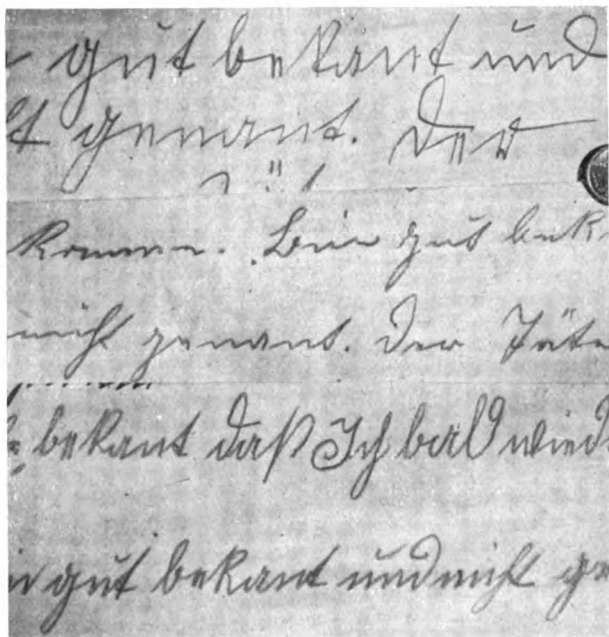 gut bekant und
genant. Der
komme. Bin gut bek
nicht genant. Der Täte
bekant daß Ich bald wied
gut bekant und nicht ge